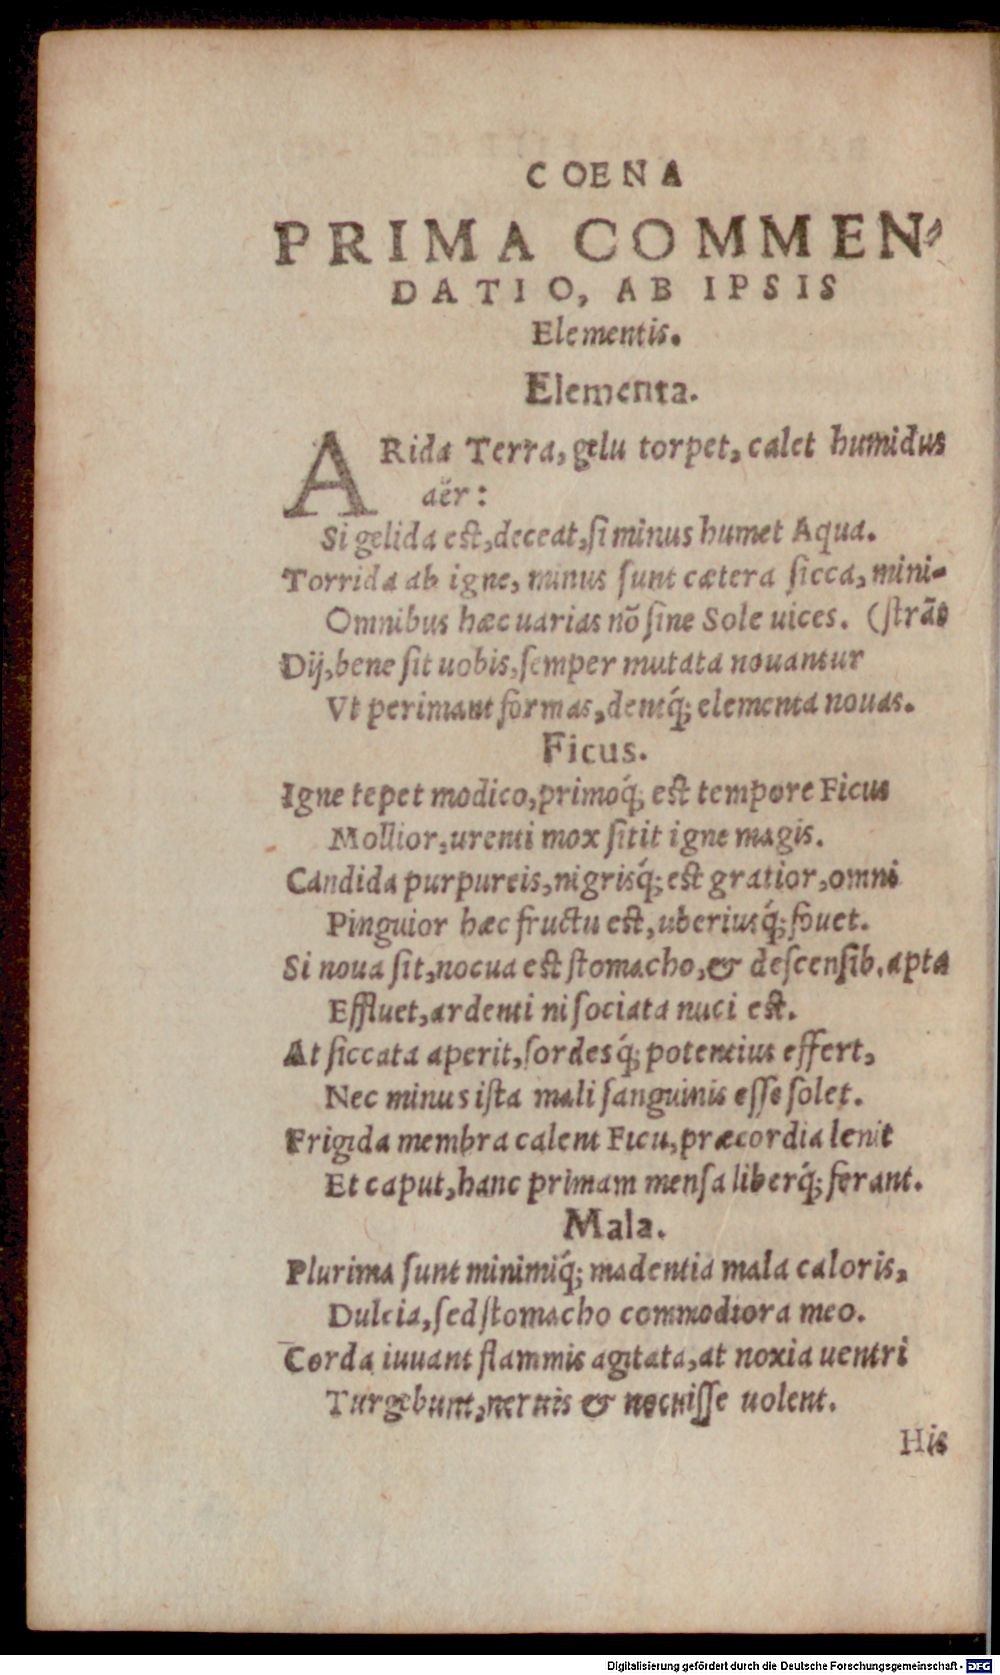 COENA
PRIMA COMMEN-
DATIO, AB IPSIS
Elementis.
Elementa.
ARida Terra, gelu torpet, calet humidus
aër:
Si gelida est, deceat, si minus humet Aqua.
Torrida ab igne, minus sunt cætera sicca, mini-
Omnibus hæc uarias nō sine Sole uices. (strās
Dij, bene sit uobis, semper mutata nouantur
Vt perimant formas, dentq́; elementa nouas.
Ficus.
Igne tepet modico, primoq́; est tempore Ficus
Mollior, urenti mox sitit igne magis.
Candida purpureis, nigrisq́; est gratior, omni
Pinguior hæc fructu est, uberiusq́; fouet.
Si noua sit, nocua est stomacho, & descensib. apta
Effluet, ardenti ni sociata nuci est.
At siccata aperit, sordesq́; potentius effert,
Nec minus ista mali sanguinis esse solet.
Frigida membra calent Ficu, præcordia lenit
Et caput, hanc primam mensa liberq́; ferant.
Mala.
Plurima sunt minimiq́; madentia mala caloris,
Dulcia, sed stomacho commodiora meo.
Corda iuuant flammis agitata, at noxia uentri
Turgebunt, neruis & nocuisse uolent.
His
Digitalisierung gefördert durch die Deutsche Forschungsgemeinschaft - DFG